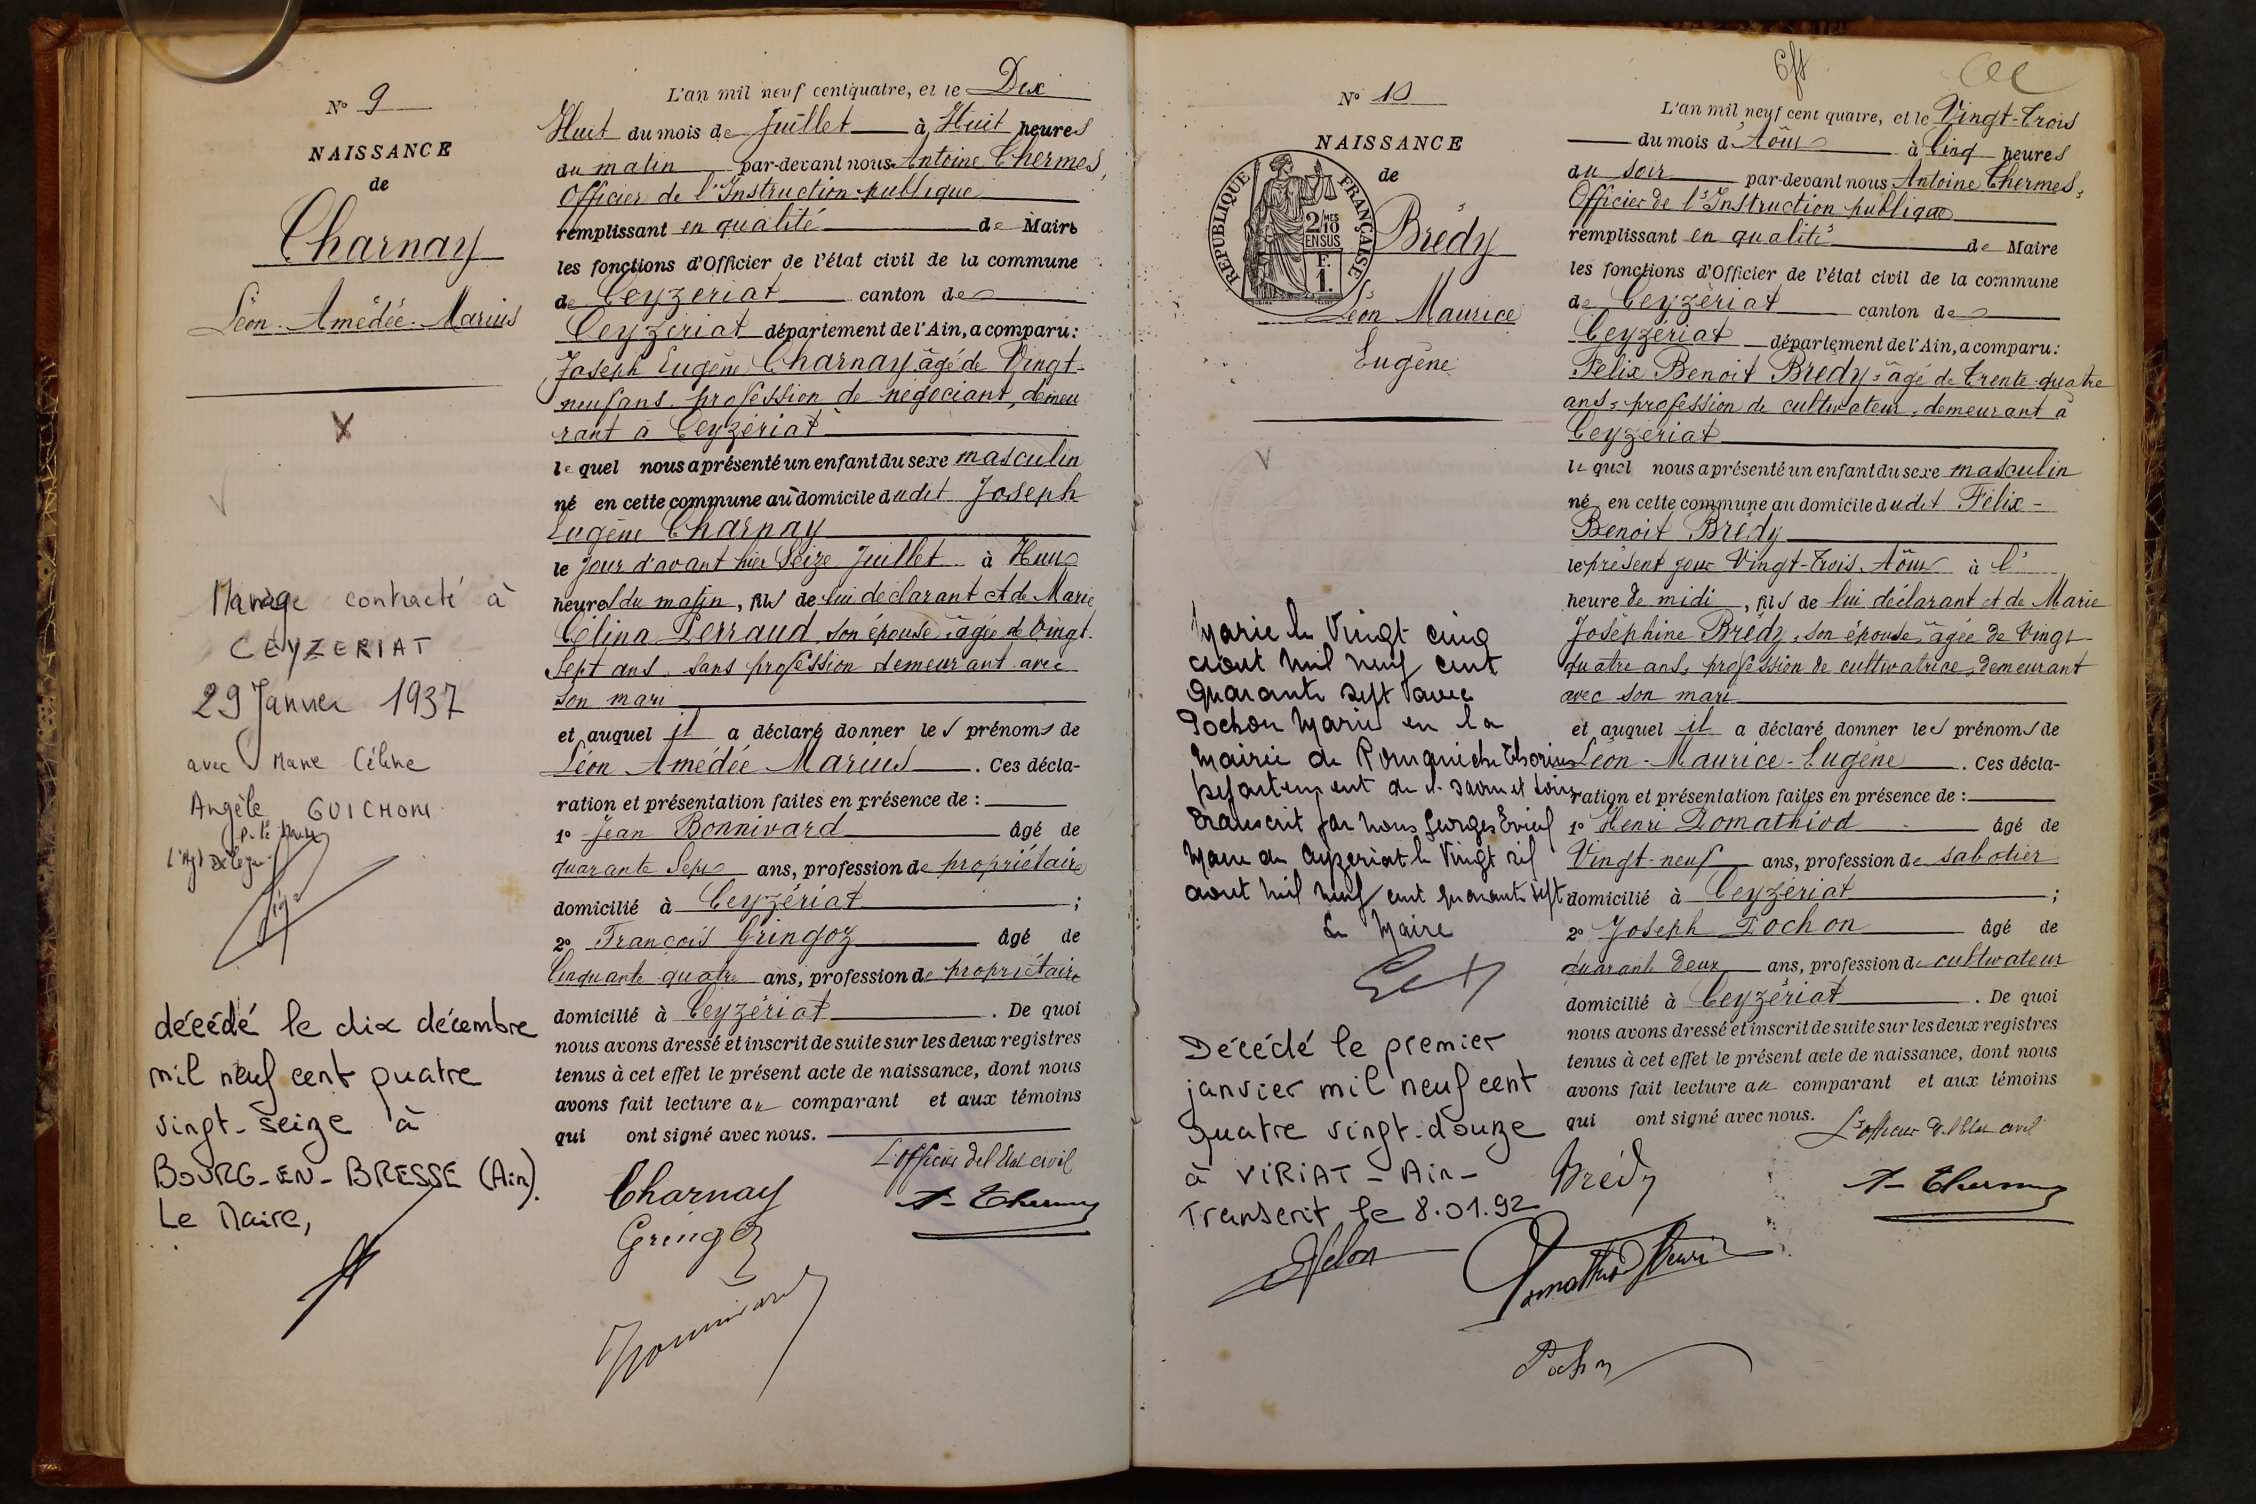 N° 9
NAISSANCE
de
Charnay
Léon-Amédée-Marius
X
V
Mariage contracté à
CEYZERIAT
29 Janvier 1937
avec Marie Céline
Angèle GUICHON
P. le Maire
L'Adj Délégué
décédé le dix décembre
mil neuf cent quatre
vingt-seize à
BOURG-EN-BRESSE (Ain).
Le Maire,
L'an mil neuf cent quatre, et le Dix
Huit du mois de Juillet à Huit heures
du matin par-devant nous Antoine Chermes,
Officier de l'Instruction publique
remplissant en qualité de Maire
les fonctions d'Officier de l'état civil de la commune
de Ceyzériat canton de
Ceyzériat département de l'Ain, a comparu:
Joseph Eugène Charnay âgé de Vingt-
neuf ans profession de négociant, demeu
rant à Ceyzériat
le quel nous a présenté un enfant du sexe masculin
né en cette commune au domicile dudit Joseph
Eugène Charnay
le jour d'avant hier Seize Juillet à Huit
heures du matin, fils de lui déclarant et de Marie
Célina Perraud son épouse, âgée de Vingt-
Sept ans, sans profession demeurant avec
son mari
et auquel il a déclaré donner les prénoms de
Léon Amédée Marius. Ces décla-
ration et présentation faites en présence de :
1° Jean Bonnivard âgé de
quarante Sept ans, profession de propriétaire
domicilié à Ceyzériat ;
2° François Gringoz âgé de
Cinquante quatre ans, profession de propriétaire
domicilié à Ceyzériat. De quoi
nous avons dressé et inscrit de suite sur les deux registres
tenus à cet effet le présent acte de naissance, dont nous
avons fait lecture au comparant et aux témoins
qui ont signé avec nous.
L'officier de l'Etat civil
Charnay
A. Chermes
Gringoz
Bonnivard
N° 10
NAISSANCE
de
REPUBLIQUE FRANÇAISE
2/10 MES
EN SUS
F.
1.
Brédy
Léon Maurice
Eugène
V
Marié le Vingt cinq
aout mil neuf cent
quarante sept avec
Pochon Marie en la
Mairie de Romanèche Thorins
département de Saone et Loire
Transcrit par nous Georges
Maire de Ceyzeriat le Vingt six
aout mil neuf cent quarante sept
Le Maire
Décédé le premier
janvier mil neuf cent
quatre vingt-douze
à VIRIAT - Ain -
Transcrit le 8.01.92
L'an mil neuf cent quatre, et le Vingt-Trois
du mois d'Août à Cinq heures
du soir par-devant nous Antoine Chermes,
Officier de l'Instruction publique
remplissant en qualité de Maire
les fonctions d'Officier de l'état civil de la commune
de Ceyzériat canton de
Ceyzériat département de l'Ain, a comparu:
Félix Benoit Brédy, âgé de Trente-quatre
ans, profession de cultivateur, demeurant à
Ceyzériat
le quel nous a présenté un enfant du sexe masculin
né en cette commune au domicile dudit Félix-
Benoit Brédy
le présent jour Vingt-Trois Août à l'
heure de midi, fils de lui déclarant et de Marie
Joséphine Brédy, son épouse, âgée de Vingt-
quatre ans, profession de cultivatrice, demeurant
avec son mari
et auquel il a déclaré donner les prénoms de
Léon-Maurice-Eugène. Ces décla-
ration et présentation faites en présence de :
1° Henri Pomathiod âgé de
Vingt-neuf ans, profession de sabotier
domicilié à Ceyzériat ;
2° Joseph Pochon âgé de
quarante Deux ans, profession de cultivateur
domicilié à Ceyzériat. De quoi
nous avons dressé et inscrit de suite sur les deux registres
tenus à cet effet le présent acte de naissance, dont nous
avons fait lecture au comparant et aux témoins
qui ont signé avec nous.
L'officier de l'Etat civil
Brédy
A. Chermes
Pomathiod Henri
Pochon